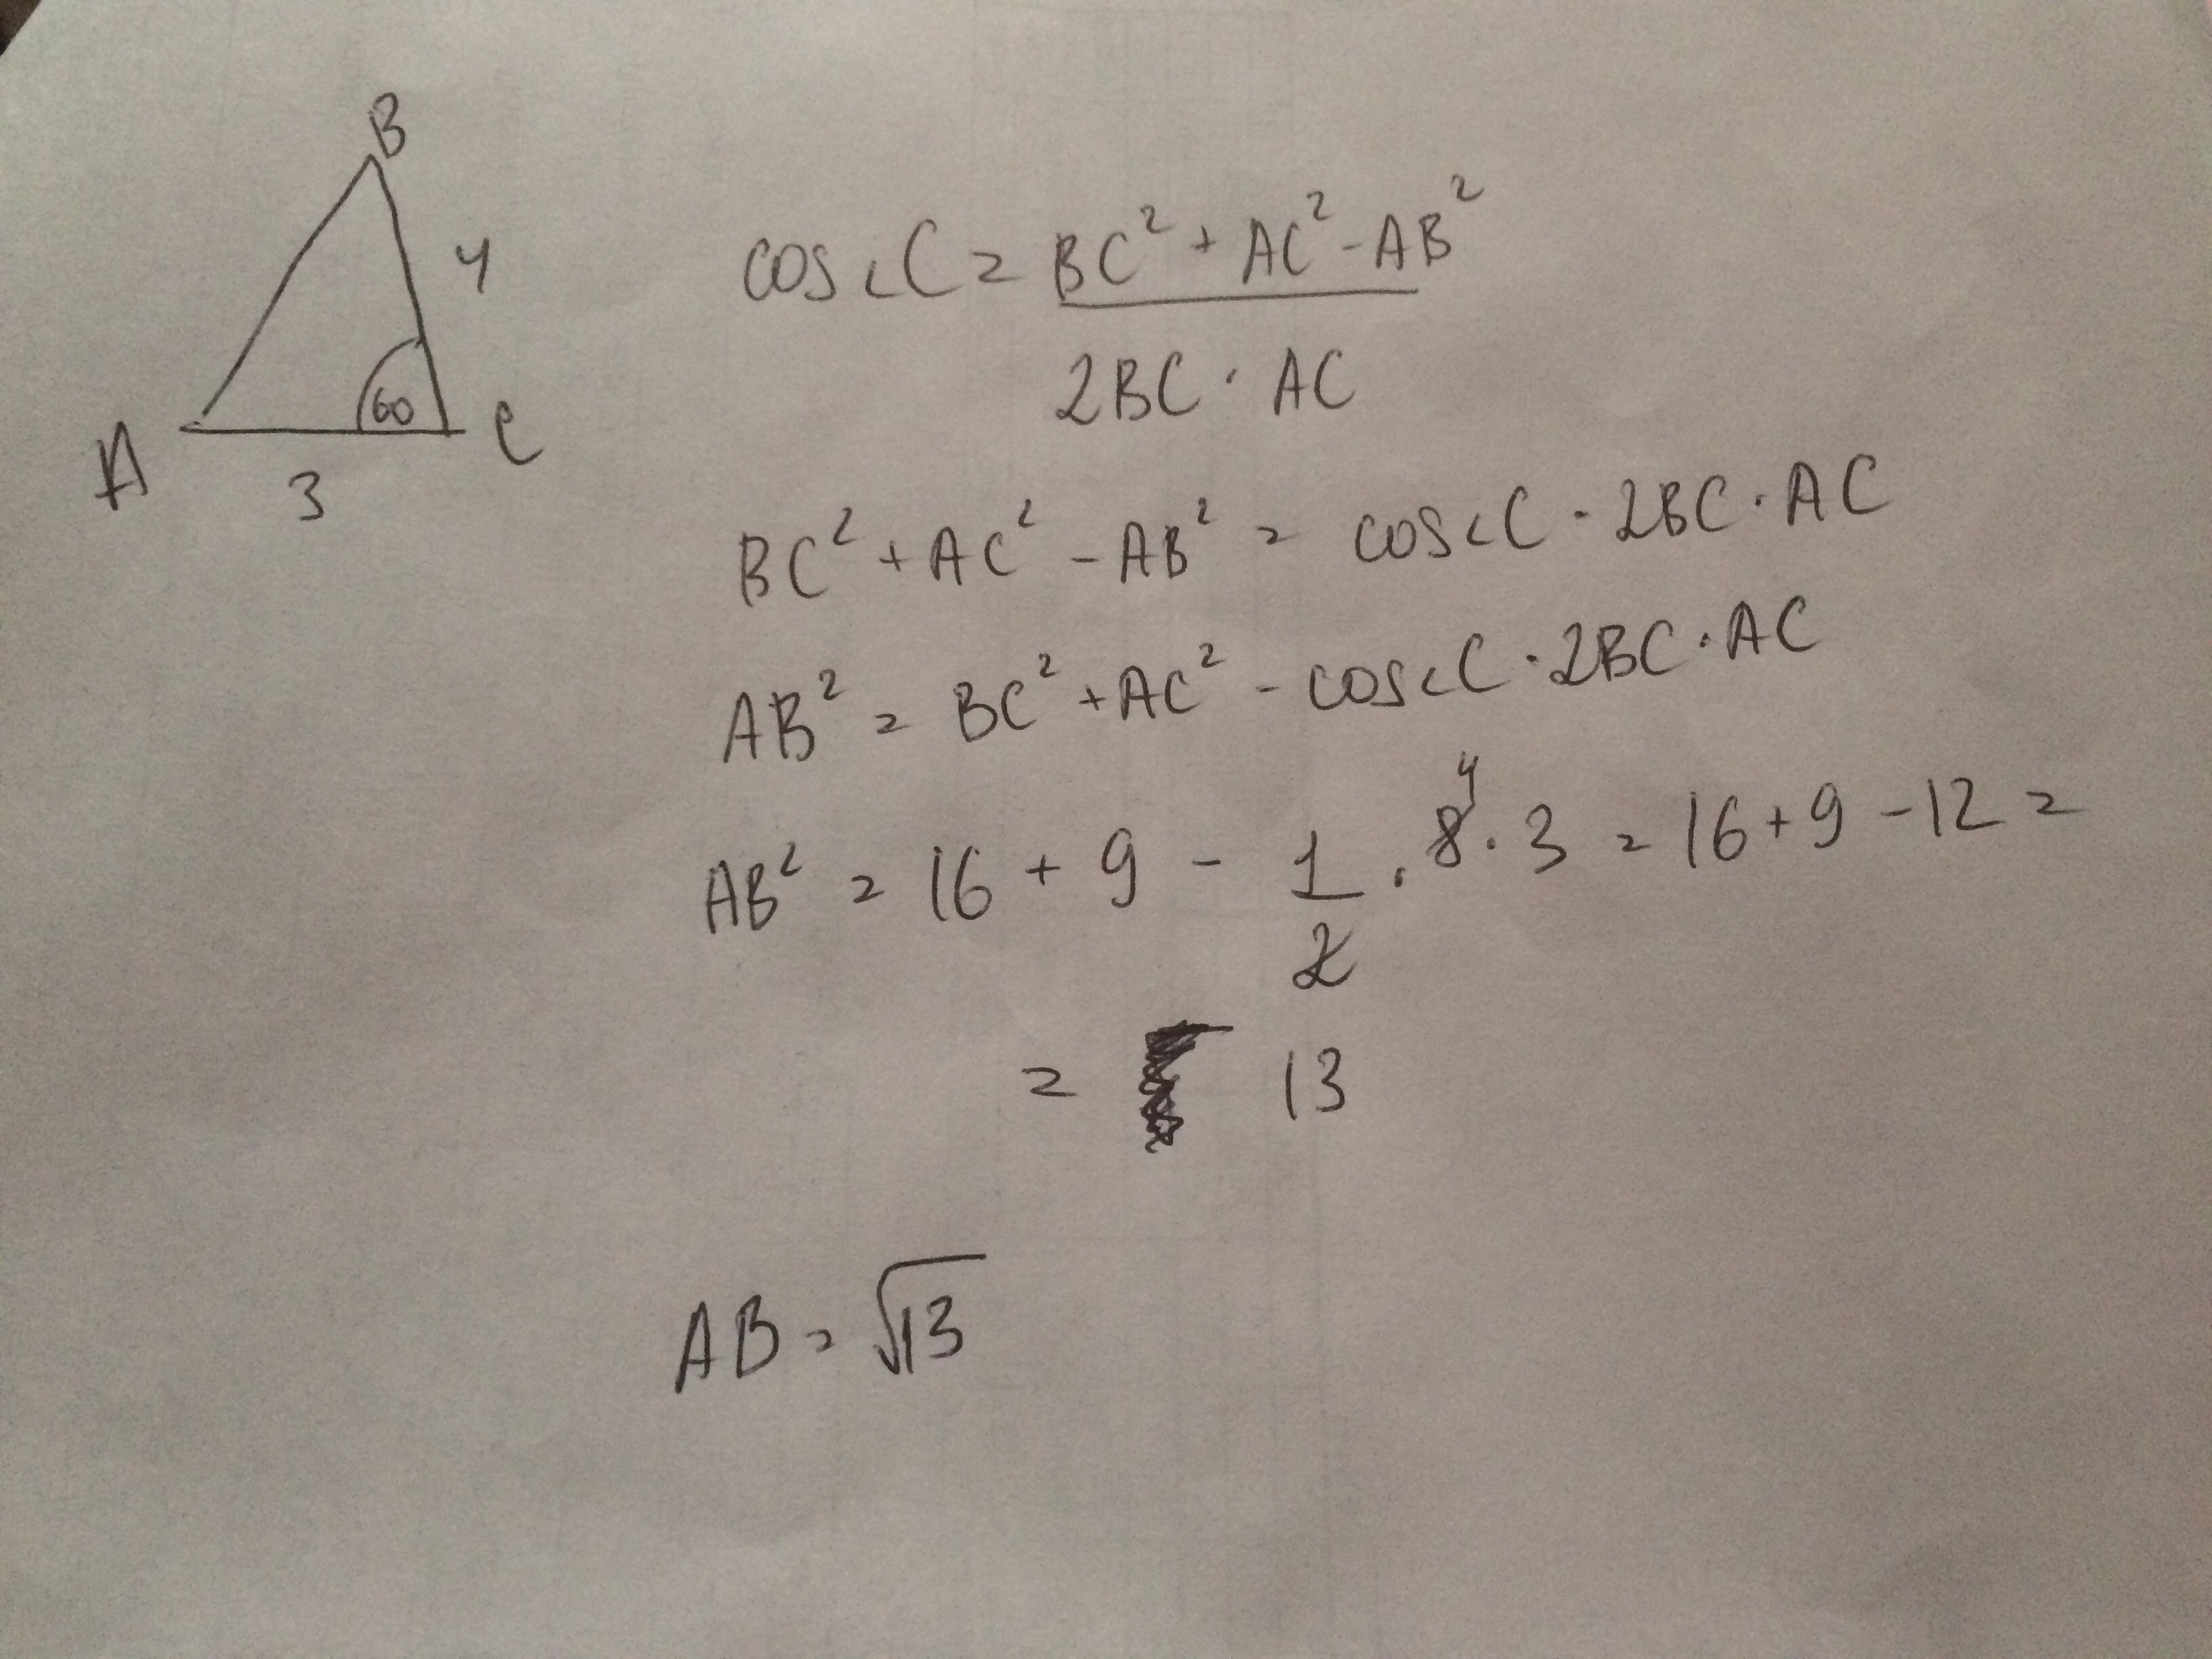 B
4
60
A
C
3
cos∠C = BC² + AC² - AB²
2BC · AC
BC² + AC² - AB² = cos∠C · 2BC · AC
AB² = BC² + AC² - cos∠C · 2BC · AC
4
AB² = 16 + 9 - 1/2 · 8 · 3 = 16 + 9 - 12 =
= 13
AB = √13